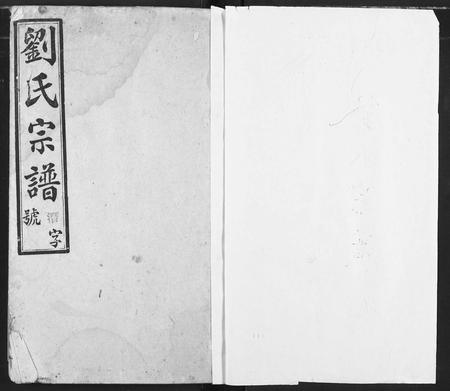 劉氏宗譜
字
號